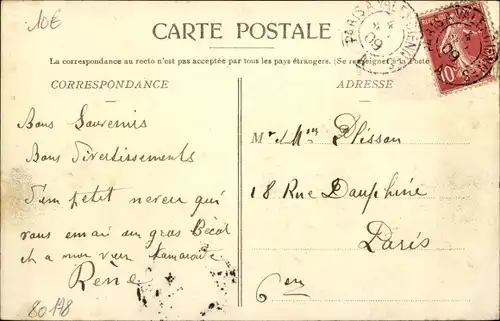 10€
CARTE POSTALE
La correspondance au recto n'est pas acceptée par tous les pays étrangers. (Se renseigner à la Poste
CORRESPONDANCE
ADRESSE
PARIS A VALENCIENNES
09
10
Bons Souvenirs
Bons Divertissements
D'un petit neveu qui
vous envoi un gros Bécot
et a mon vieux Kamarade
Réné
Mr et Mme Plisson
18 Rue Dauphine
Paris
6em
80178